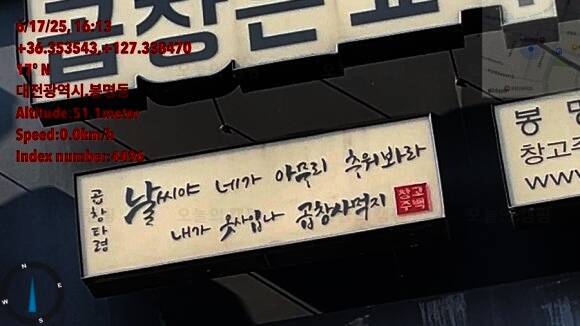 곱창은
6/17/25, 16:13
+36.353543,+127.338470
17° N
대전광역시,봉명동
Altitude:51.1meter
Speed:0.0km/h
Index number:
곱창타령
날씨야 네가 아무리 추워봐라
내가 옷사입나 곱창사먹지
창고
주백
봉 명
창고주
www